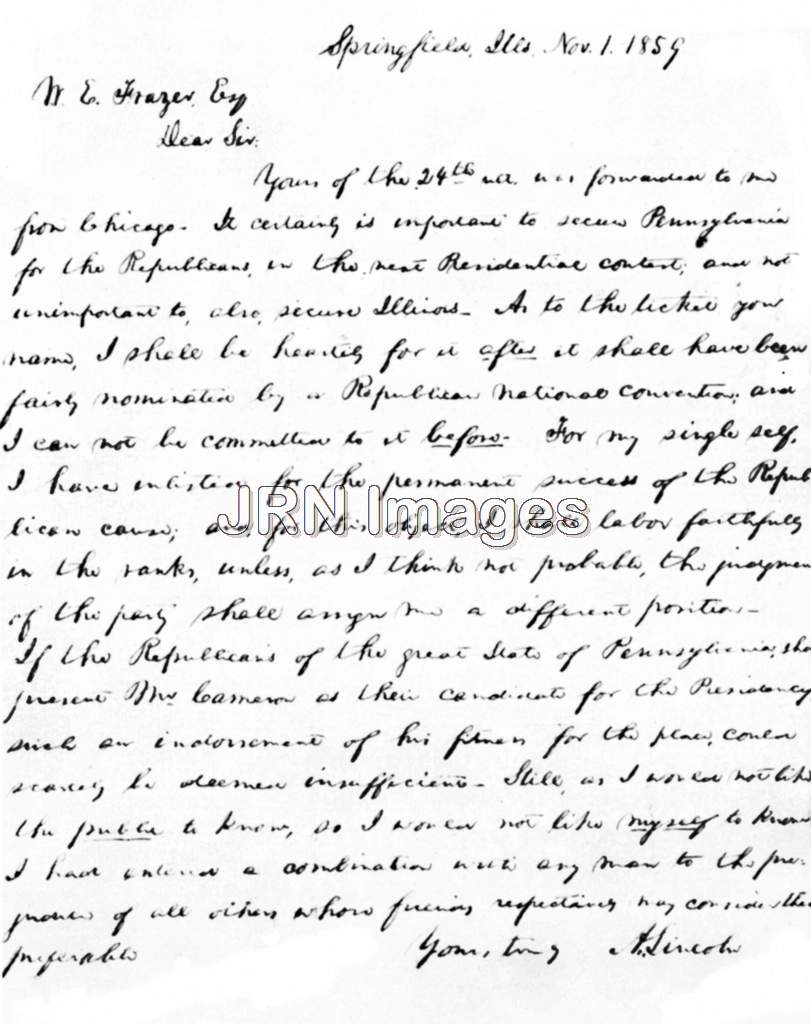 Springfield, Ills. Nov. 1. 1859
W. E. Frazer, Esq
Dear Sir:
Yours of the 24th ult. was forwarded to me
from Chicago. It certainly is important to secure Pennsylvania
for the Republicans, in the next Presidential contest; and not
unimportant to, also, secure Illinois. As to the ticket you
name, I shall be heartily for it after it shall have been
fairly nominated by a Republican national convention; and
I can not be committed to it before. For my single self,
I have enlisted for the permanent success of the Repub-
JRN Images
lican cause; and, for this object, I shall labor faithfully
in the ranks, unless, as I think not probable, the judgmen
of the party shall assign me a different position.
If the Republicans of the great State of Pennsylvania, sha
present Mr Cameron as their candidate for the Presidency
such an indorsement of his fitness for the place, could
scarcely be deemed insufficient. Still, as I would not like
the public to know, so I would not like myself to know
I had entered a combination with any man to the pre-
judice of all others whose friends respectively may consider them
preferable
Yours, truly A. Lincoln